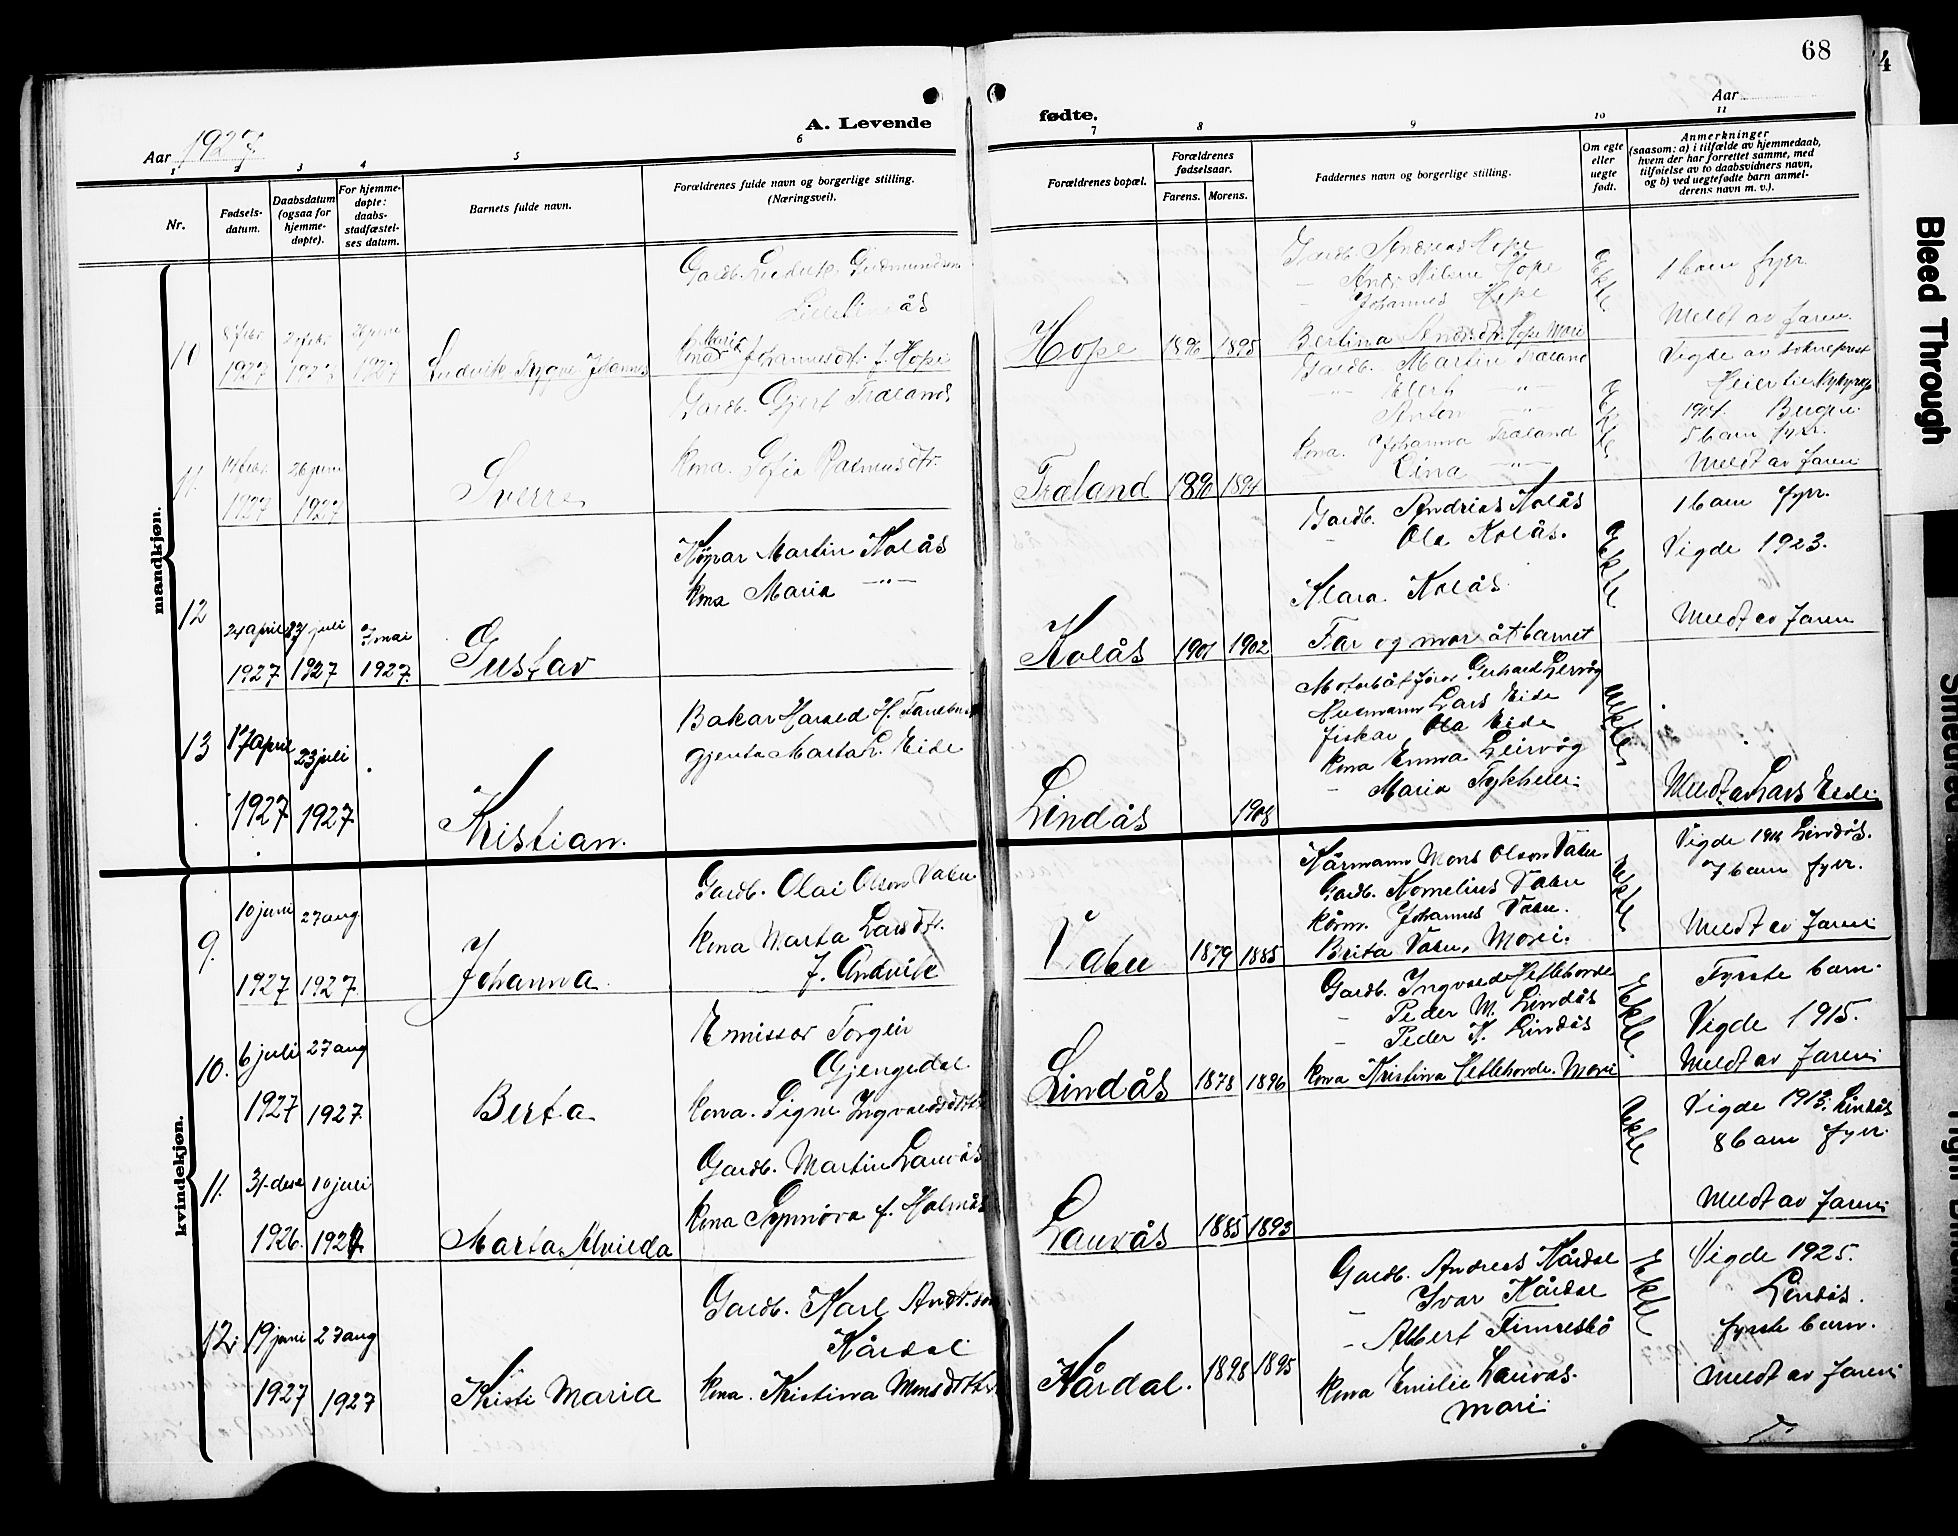 68
A. Levende
fødte.
Aar 1927
Aar
1 2 3 4 5 6
7 8 9 10 11
Nr.
Fødsels-
datum.
Daabsdatum
(ogsaa for
hjemme-
døpte).
For hjemme-
døpte:
daabs-
stadfæstel-
ses datum.
Barnets fulde navn.
Forældrenes fulde navn og borgerlige stilling.
(Næringsvei).
Forældrenes bopæl.
Forældrenes
fødselsaar.
Farens. Morens.
Faddernes navn og borgerlige stilling.
Om egte
eller
uegte
født.
Anmerkninger
(saasom: a) i tilfælde av hjemmedaab,
hvem der har forrettet samme, med
tilføielse av to daabsvidners navn,
og b) ved uegtefødte barn anmel-
derens navn m. v.).
mandkjøn.
10
1927 1927 1927
Ludvik Trygve Johannes
Gardb. Ludvik Gudmundsen
Kona Johannesdtr. f. Hope
Hope 1896 1895
Gardb. Andreas Hope
Johannes Hope
Ekte
1 barn fyrr.
Meldt av faren.
11.
14 febr. 26 juni
1927 1927
Sverre
Gardb. Gjert Træland
Kona. Sofia Rasmusdtr.
Træland 1890 1894
Gardb. Martin Træland
Anton
Kona. Johanna Træland
Ekte
Vigde av sokneprest
1914.
5 barn fyrr.
Meldt av faren.
12
24 april juli 7 mai
1927 1927 1927
Gustav
Martin Kolås
Kona Maria -"-
Kolås 1901 1902
Gardb. Andrias Kolås
Ola Kolås.
Klara Kolås
Far og mor åt barnet
Ekte
1 barn fyrr.
Vigde 1923.
Meldt av faren
13
17 april 23 juli
1927 1927
Kristian.
Bakar Harald H.
gjenta Marta L. Eide
Lindås 1908
Motorbåtførar Gerhard Leirvåg
Husmann Lars Eide
fiskar Ola Eide
Kona Emma Leirvåg
- Maria
Uekte
Meldt av Lars Eide
kvindekjøn.
9.
10 juni 27 aug
1927 1927
Johanna
Gardb. Olai Olson Vabø
Kona Marta Larsdtr.
f. Andvik
Vabø 1879 1885
Kårmann Mons Olson Vabø
Gardb. Kornelius Vabø
Kårm. Johannes Vabø.
Brita Vabø, Mori.
Ekte
Vigde Lindås.
7 barn fyrr.
Meldt av faren
10.
6 juli 27 aug
1927 1927
Berta
Emissær Torgeir
Gjengedal
Kona. Signe Ingvaldsdtr
Lindås 1878 1896
Gardb. Ingvald Hetlehorde
- Peder M. Lindås
- Peder K. Lindås
Kona Kristina Hetlehorde. Mori
Ekte
Fyrste barn.
Vigde 1915.
Meldt av faren
11.
31 des 10 juli
1926. 1927
Marta Alvilda
Gardb. Martin Lauvås
Kona Synnøva f. Holmås
Lauvås 1885 1893
Ekte
Vigde 1913. Lindås
8 barn fyrr.
Meldt av faren
12.
19 juni 27 aug
1927 1927
Kristi Maria
Gardb. Karl
Kårdal
Kona. Kristina Monsdotter
Kårdal. 1898 1895
Gardb. Andreas Kårdal
- Ivar Kårdal
- Albert
Kona Emilie Lauvås.
Mori
Ekte
Vigde 1925.
Lindås.
fyrste barn.
Meldt av faren
Bleed Through